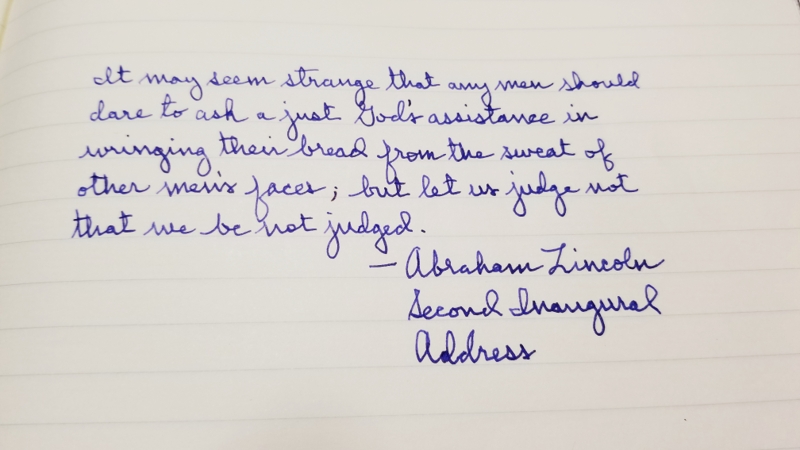 It may seem strange that any men should
dare to ask a just God's assistance in
wringing their bread from the sweat of
other men's faces; but let us judge not
that we be not judged.
— Abraham Lincoln
Second Inaugural
Address